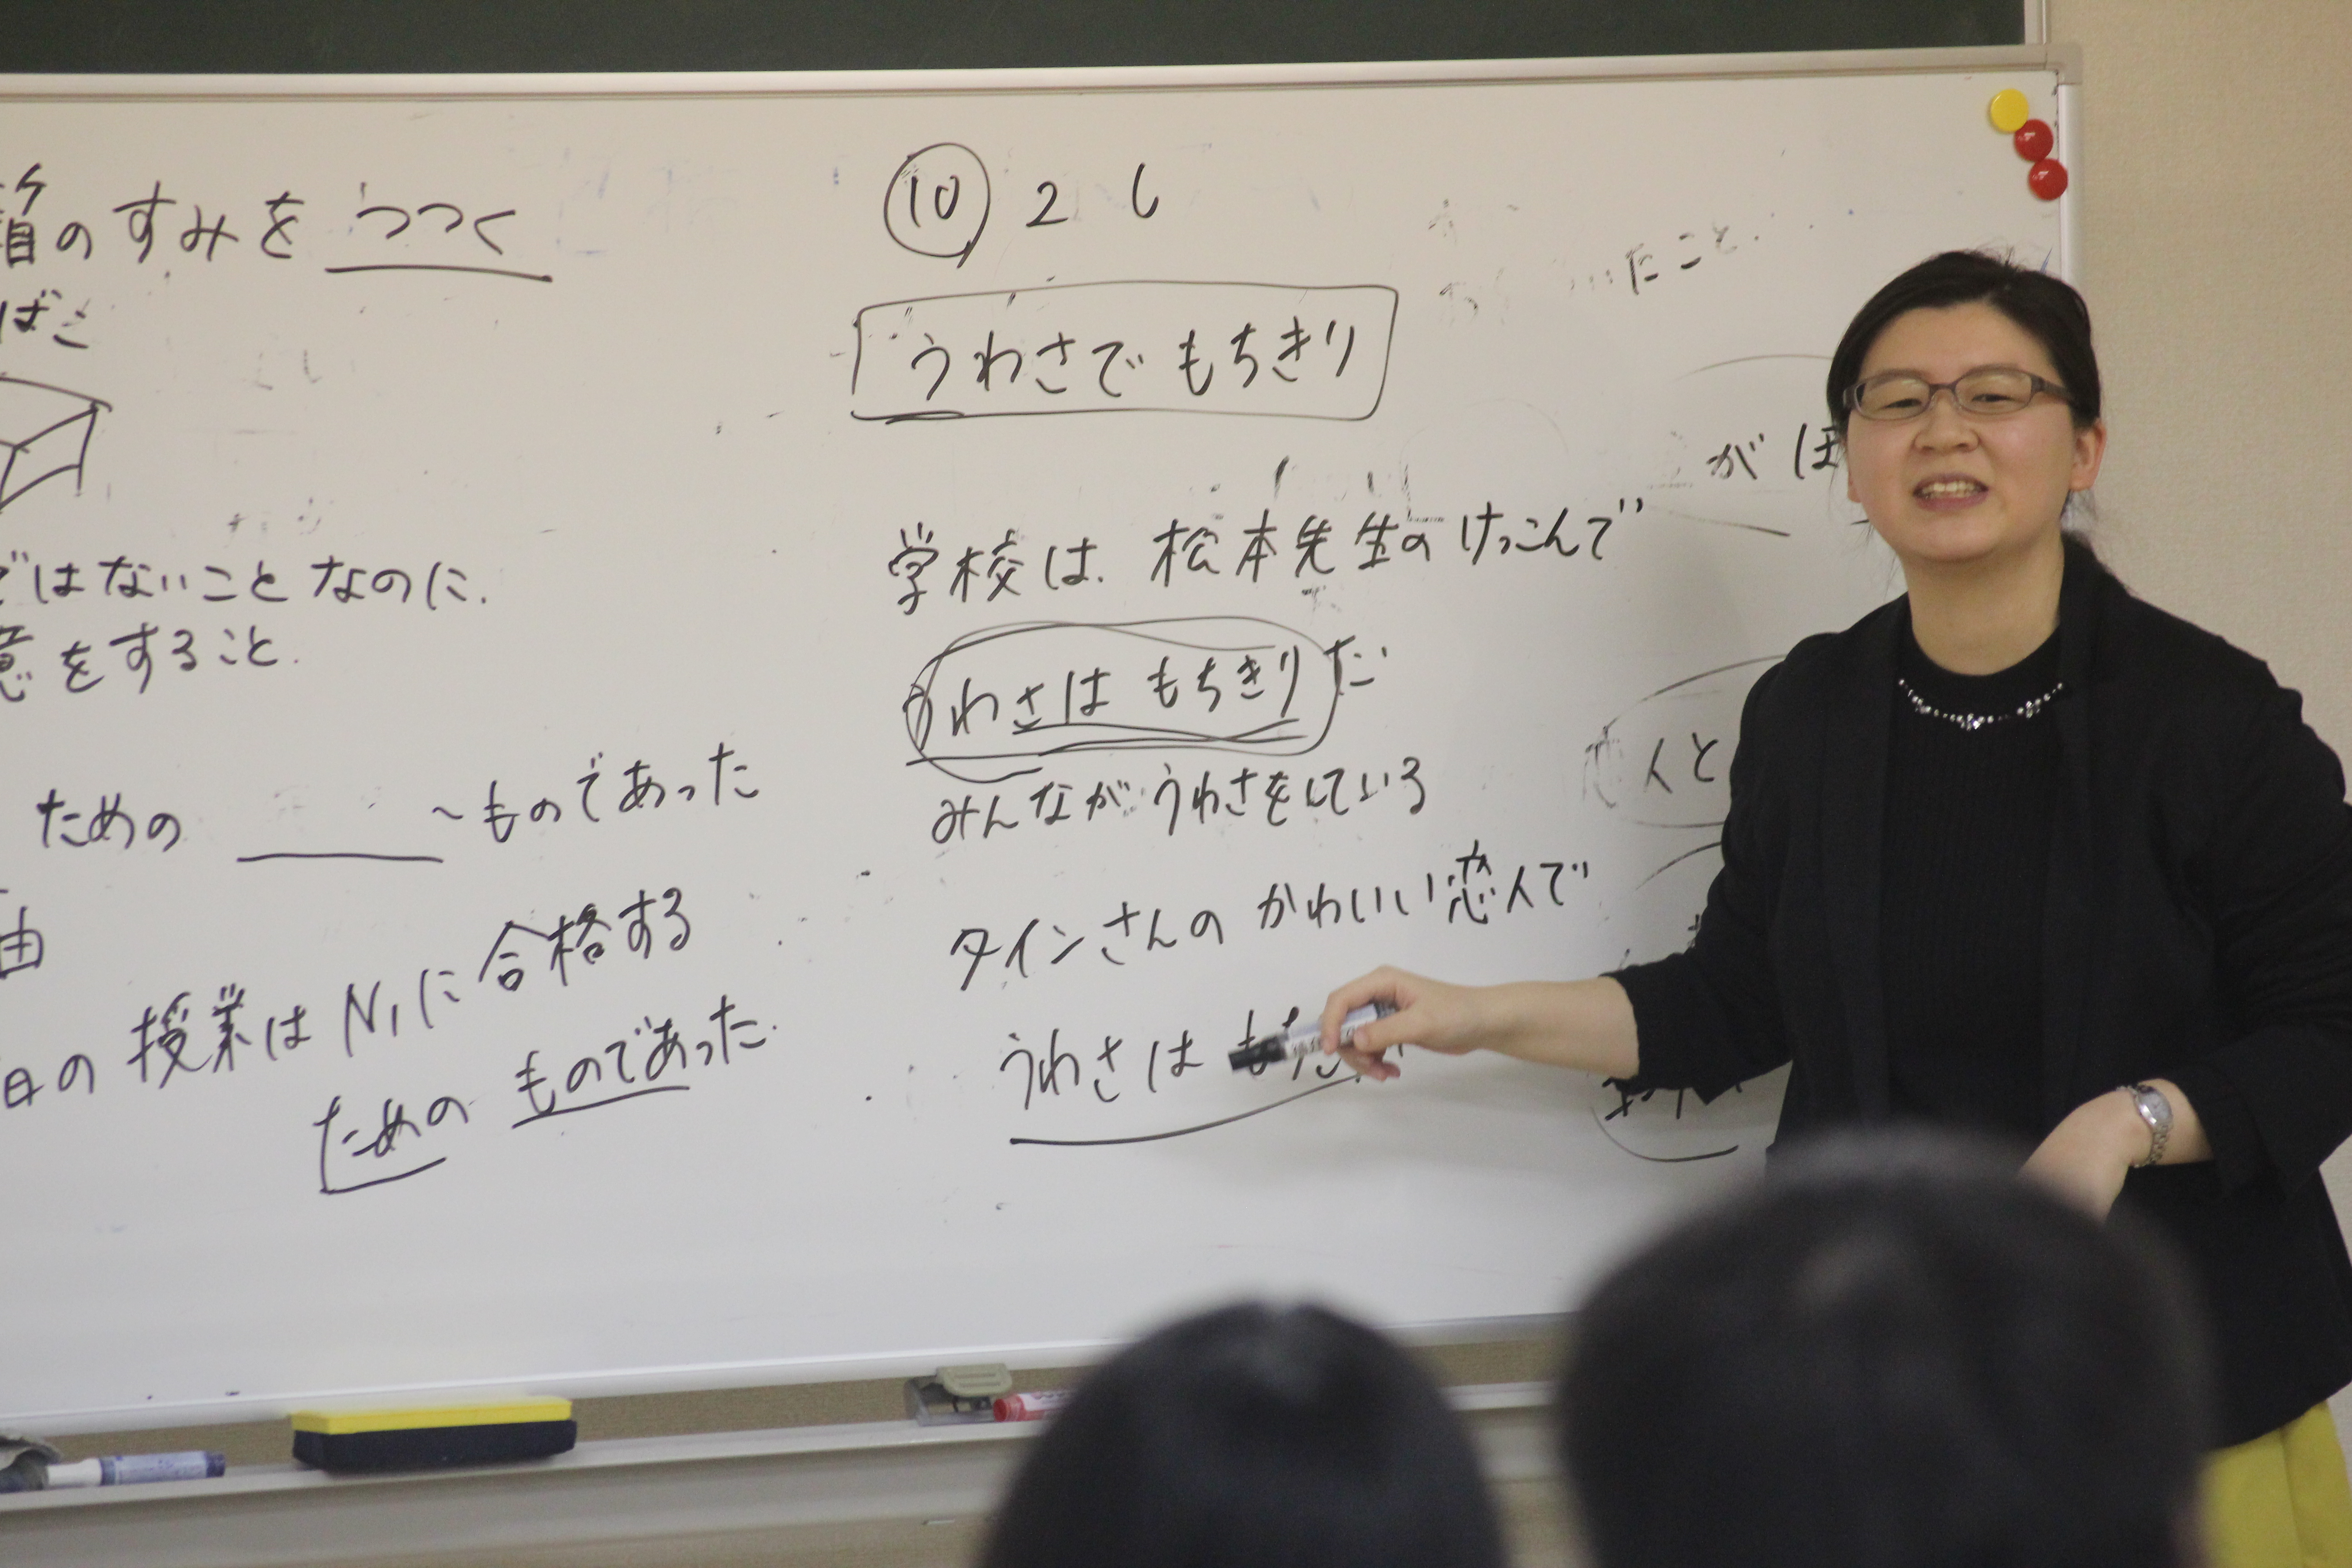 のすみをつつく
ばこ
ではないことなのに.
意をすること.
ための ～ものであった
由
日の授業はN1に合格する
ための ものであった.
⑩ 2 6
うわさでもちきり
学校は.松本先生のけっこんで
うわさはもちきりだ
みんながうわさをしている
タインさんのかわいい恋人で
うわさは
たこと.
がほ
人と